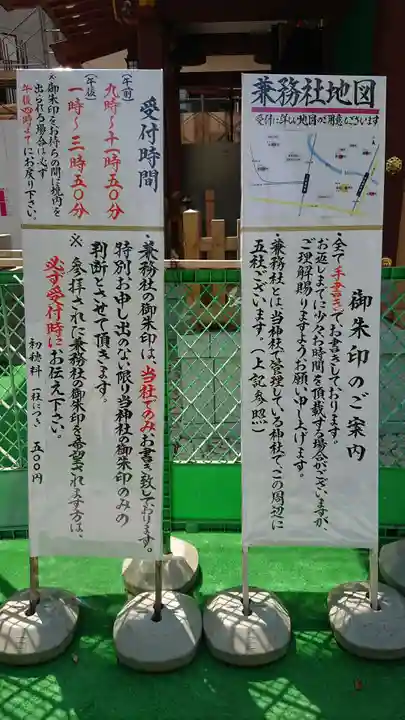 兼務社地図
受付に詳しい地図のご用意ございます
御朱印のご案内
・全て手書きでお書きしております。
お返しまでに少々お時間を頂戴する場合がございますが、
ご理解賜りますようお願い申し上げます。
・兼務社とは当神社で管理している神社で、この周辺に
五社ございます。(上記参照)
受付時間
(午前)
九時~十一時五〇分
(午後)
一時~三時五〇分
※御朱印をお持ちの間に境内を
出られる場合は必ず
午後四時までにお戻り下さい。
・兼務社の御朱印は、当社でのみお書き致しております。
特別お申し出のない限り当神社の御朱印のみの
判断とさせて頂きます。
※参拝された兼務社の御朱印を希望されます方は、
必ず受付時にお伝え下さい。
初穂料(一社につき)五〇〇円